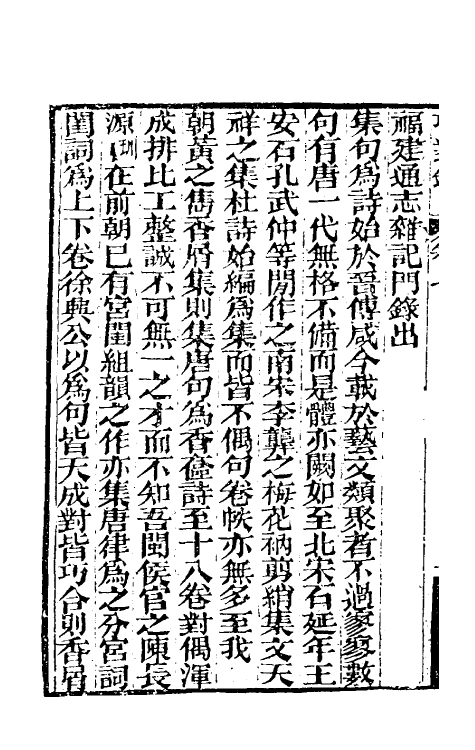 福建通志雜記門錄出
集句為詩始於晉傅咸今載於藝文類聚者不過寥寥數
句有唐一代無格不備而是體亦闕如至北宋石延年王
安石孔武仲等間作之南宋李龏之梅花衲剪綃集文天
祥之集杜詩始編為集而皆不偶句卷帙亦無多至我
朝黃之雋香屑集則集唐句為香奩詩至十八卷對偶渾
成排比工整誠不可無一之才而不知吾閩侯官之陳長
源圳在前朝已有宮閨組韻之作亦集唐律為之分宮詞
閨詞為上下卷徐興公以為句皆天成對皆巧合則香屑